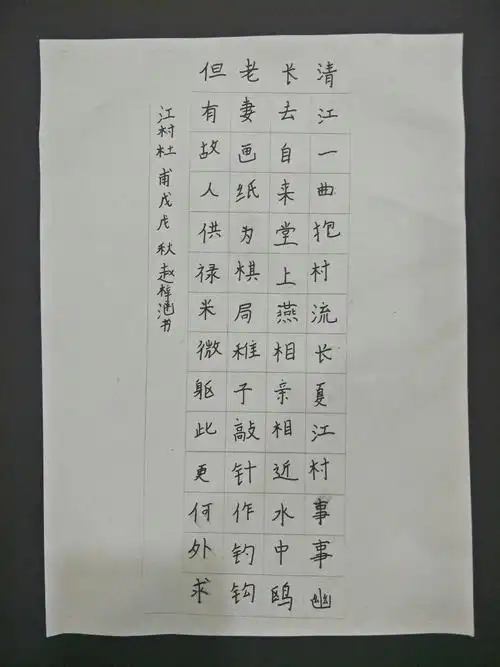 清江一曲抱村流长夏江村事事幽
长去自来堂上燕相亲相近水中鸥
老妻画纸为棋局稚子敲针作钓钩
但有故人供禄米微躯此更何外求
江村杜甫戊戌秋赵梓书